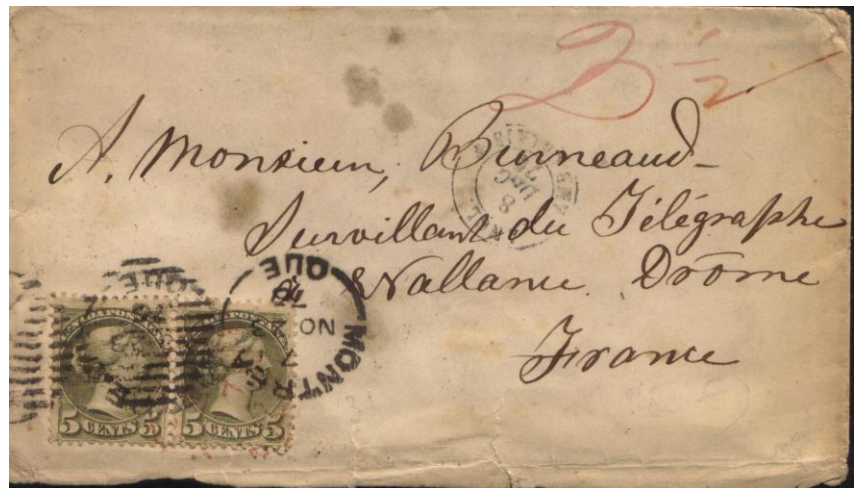 3 1/2
A. Monsieur, Burneaud-
Survillant du Télégraphe
Vallance. Drôme
France
MONTR
QUE
NO
5 CENTS 5
5 CENTS 5